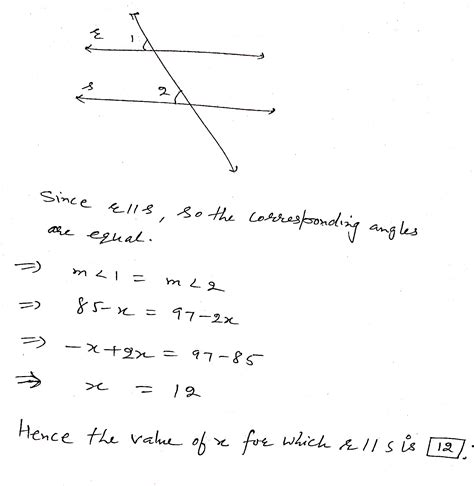 r 1
s 2
Since r||s, so the corresponding angles
are equal.
=> m<1 = m<2
=> 85-x = 97-2x
=> -x+2x = 97-85
=> x = 12
Hence the value of x for which r||s is 12.